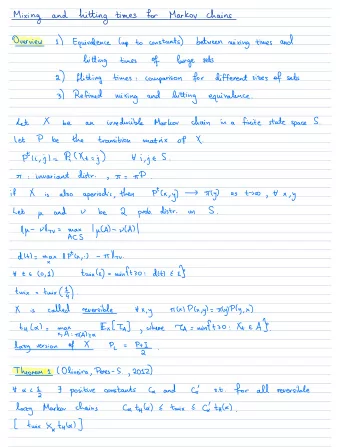 Mixing and hitting times for Markov chains.
Overview 1) Equivalence (up to constants) between mixing times and
hitting times of large sets
2) Hitting times: comparison for different sizes of sets
3) Refined mixing and hitting equivalence.
Let X be an irreducible Markov chain in a finite state space S.
Let P be the transition matrix of X.
Pᵗ(i,j) = Pᵢ(Xₜ=j) ∀ i,j ∈ S.
π: invariant distr., π = πP
if X is also aperiodic, then Pᵗ(x,y) → π(y) as t→∞, ∀ x,y
Let μ and ν be 2 prob. distr. on S.
‖μ − ν‖_TV = max_{A⊂S} |μ(A) − ν(A)|
d(t) = max_x ‖Pᵗ(x,·) − π‖_TV.
∀ ε ∈ (0,1) t_mix(ε) = min{t≥0: d(t) ≤ ε}
t_mix = t_mix(1/4)
X is called reversible ∀ x,y π(x)P(x,y) = π(y)P(y,x)
t_H(α) = max_{x,A: π(A)≥α} E_x[τ_A], where τ_A = min{t≥0: Xₜ ∈ A}
Lazy version of X P_L = (P+I)/2.
Theorem 1 (Oliveira, Peres-S., 2012)
∀ α < 1/2 ∃ positive constants c_α and c'_α s.t. for all reversible
lazy Markov chains c_α t_H(α) ≤ t_mix ≤ c'_α t_H(α).
[ t_mix ≍ t_H(α) ]